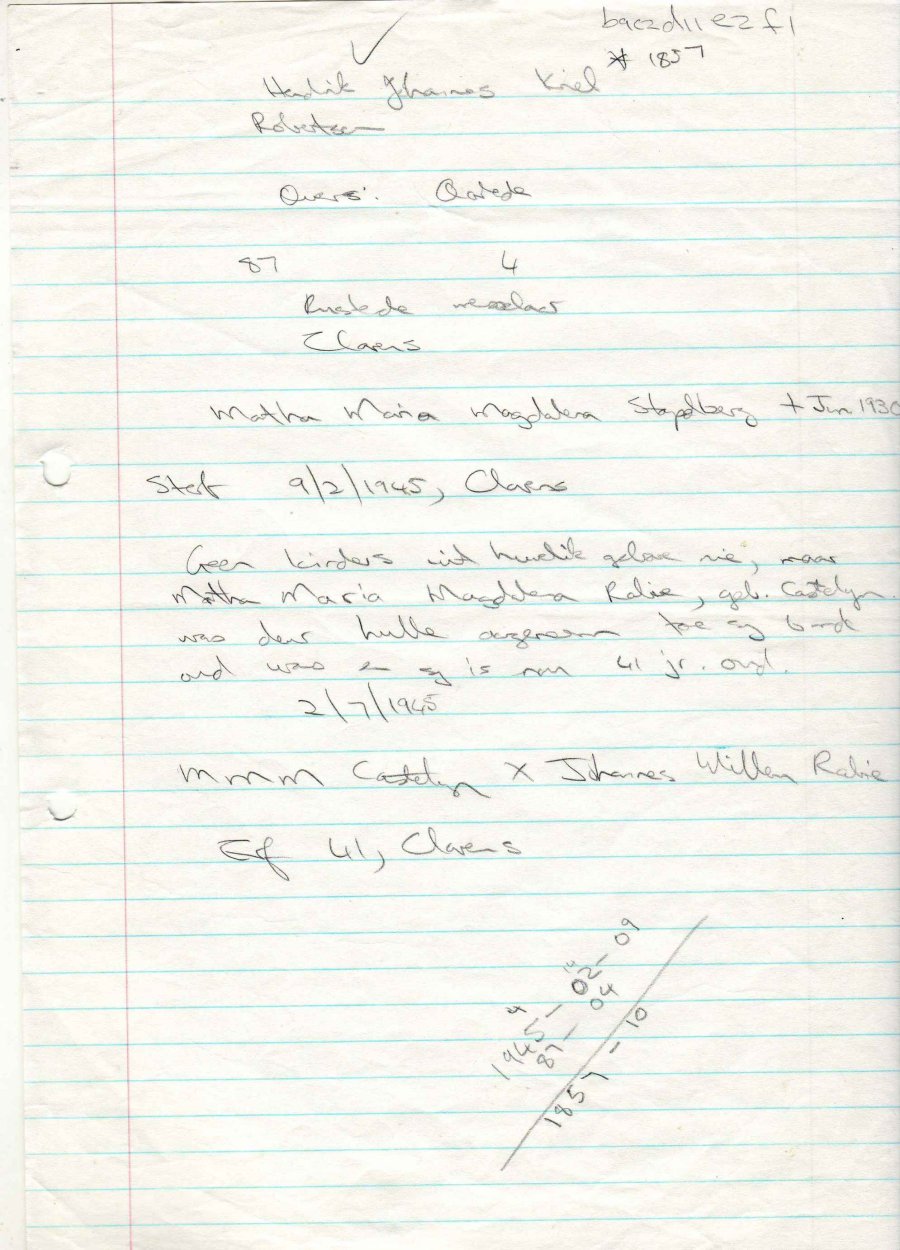 b9c2d11e2f1
* 1857
Hendrik Johannes Kriel
Robertson
Ouers: Oorlede
87 4
Rustende wewenaar
Clarens
Martha Maria Magdalena Stapelberg + Jun 1930
Sterf 9/2/1945, Clarens
Geen kinders uit huwelik gebore nie, maar
Martha Maria Magdalena Rabie, geb. Castelyn
was deur hulle aangeneem toe sy
oud was en sy is nou 41 jr. oud.
2/7/1945
MMM Castelyn X Johannes Willem Rabie
Erf 41, Clarens
1945-02-09
87-04
1857-10